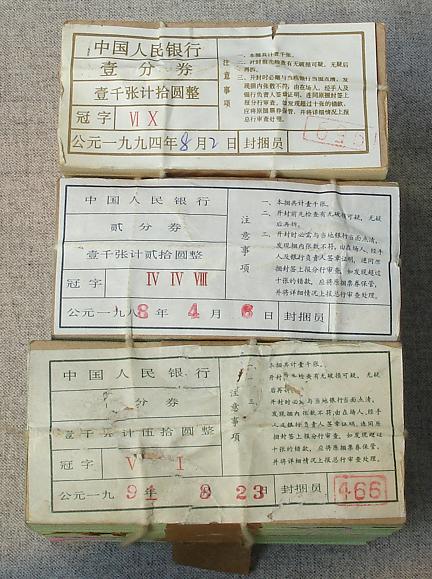 中国人民银行
壹分券
壹千张计拾圆整
冠字 VI X
公元一九九四年8月2日封捆员
注意事项
一、本捆共计壹千张。
二、开封前先检查有无破损可疑，无疑后
再拆。
三、开封时必须与当地银行当面点清，发
现捆内张数不符，由在场人、经手人及
银行负责人签章证明，连同原捆封签上
报分行审查。如发现超过十张的错款，
应将原捆票券保管，并将详细情况上报
总行审查处理。
中国人民银行
贰分券
壹千张计贰拾圆整
冠字 IV IV VIII
公元一九八8年4月6日封捆员
注意事项
一、本捆共计壹千张。
二、开封前先检查有无破损可疑，无疑
后再拆。
三、开封时必需与当地银行当面点清，
发现捆内张数不符，由在场人、经手
人及银行负责人签章证明，连同原
捆封签上报分行审查，如发现超过
十张的错款，应将原捆票券保管，
并将详细情况上报总行审查处理。
中国人民银行
分券
壹千张计伍拾圆整
冠字 V I
公元一九91年 8 23日封捆员
466
注意事项
本捆共计壹千张。
开封前先检查有无破损可疑，无疑
后再拆。
开封时必需与当地银行当面点清，
发现捆内张数不符，由在场人、经手
人及银行负责人签章证明，连同原
捆封签上报分行审查，如发现超过
十张的错款，应将原捆票券保管，
并将详细情况上报总行审查处理。